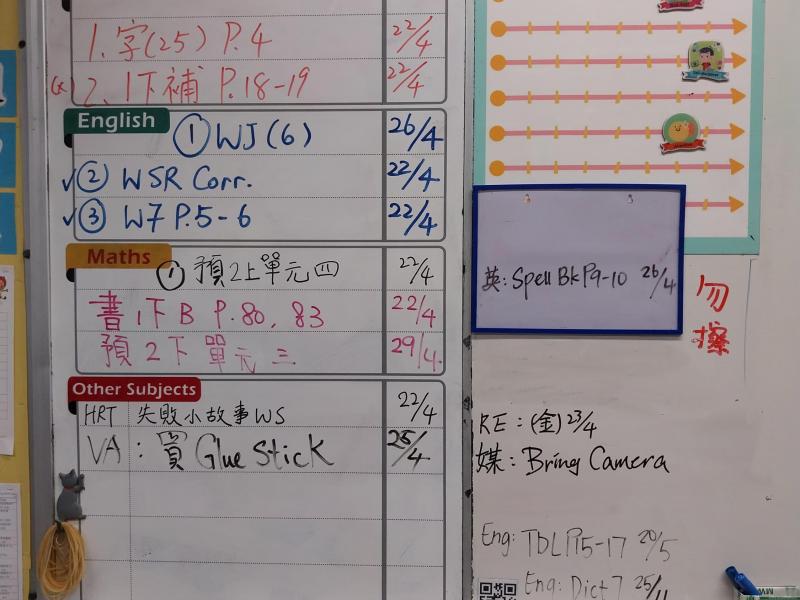 1. 字(25) P.4 22/4
(*) 2. 1下補 P.18-19 22/4
English
① WJ(6) 26/4
✓② WSR Corr. 22/4
✓③ W7 P.5-6 22/4
Maths
① 預2上單元四 22/4
書1下B P.80, 83 22/4
預2下單元三 29/4
Other Subjects
HRT 失敗小故事WS 22/4
VA : 買 Glue Stick 25/4
英: Spell Bk P9-10 26/4
勿擦
RE : (金) 23/4
媒 : Bring Camera
Eng: TBL P15-17 20/5
Eng: Dict 7 25/4